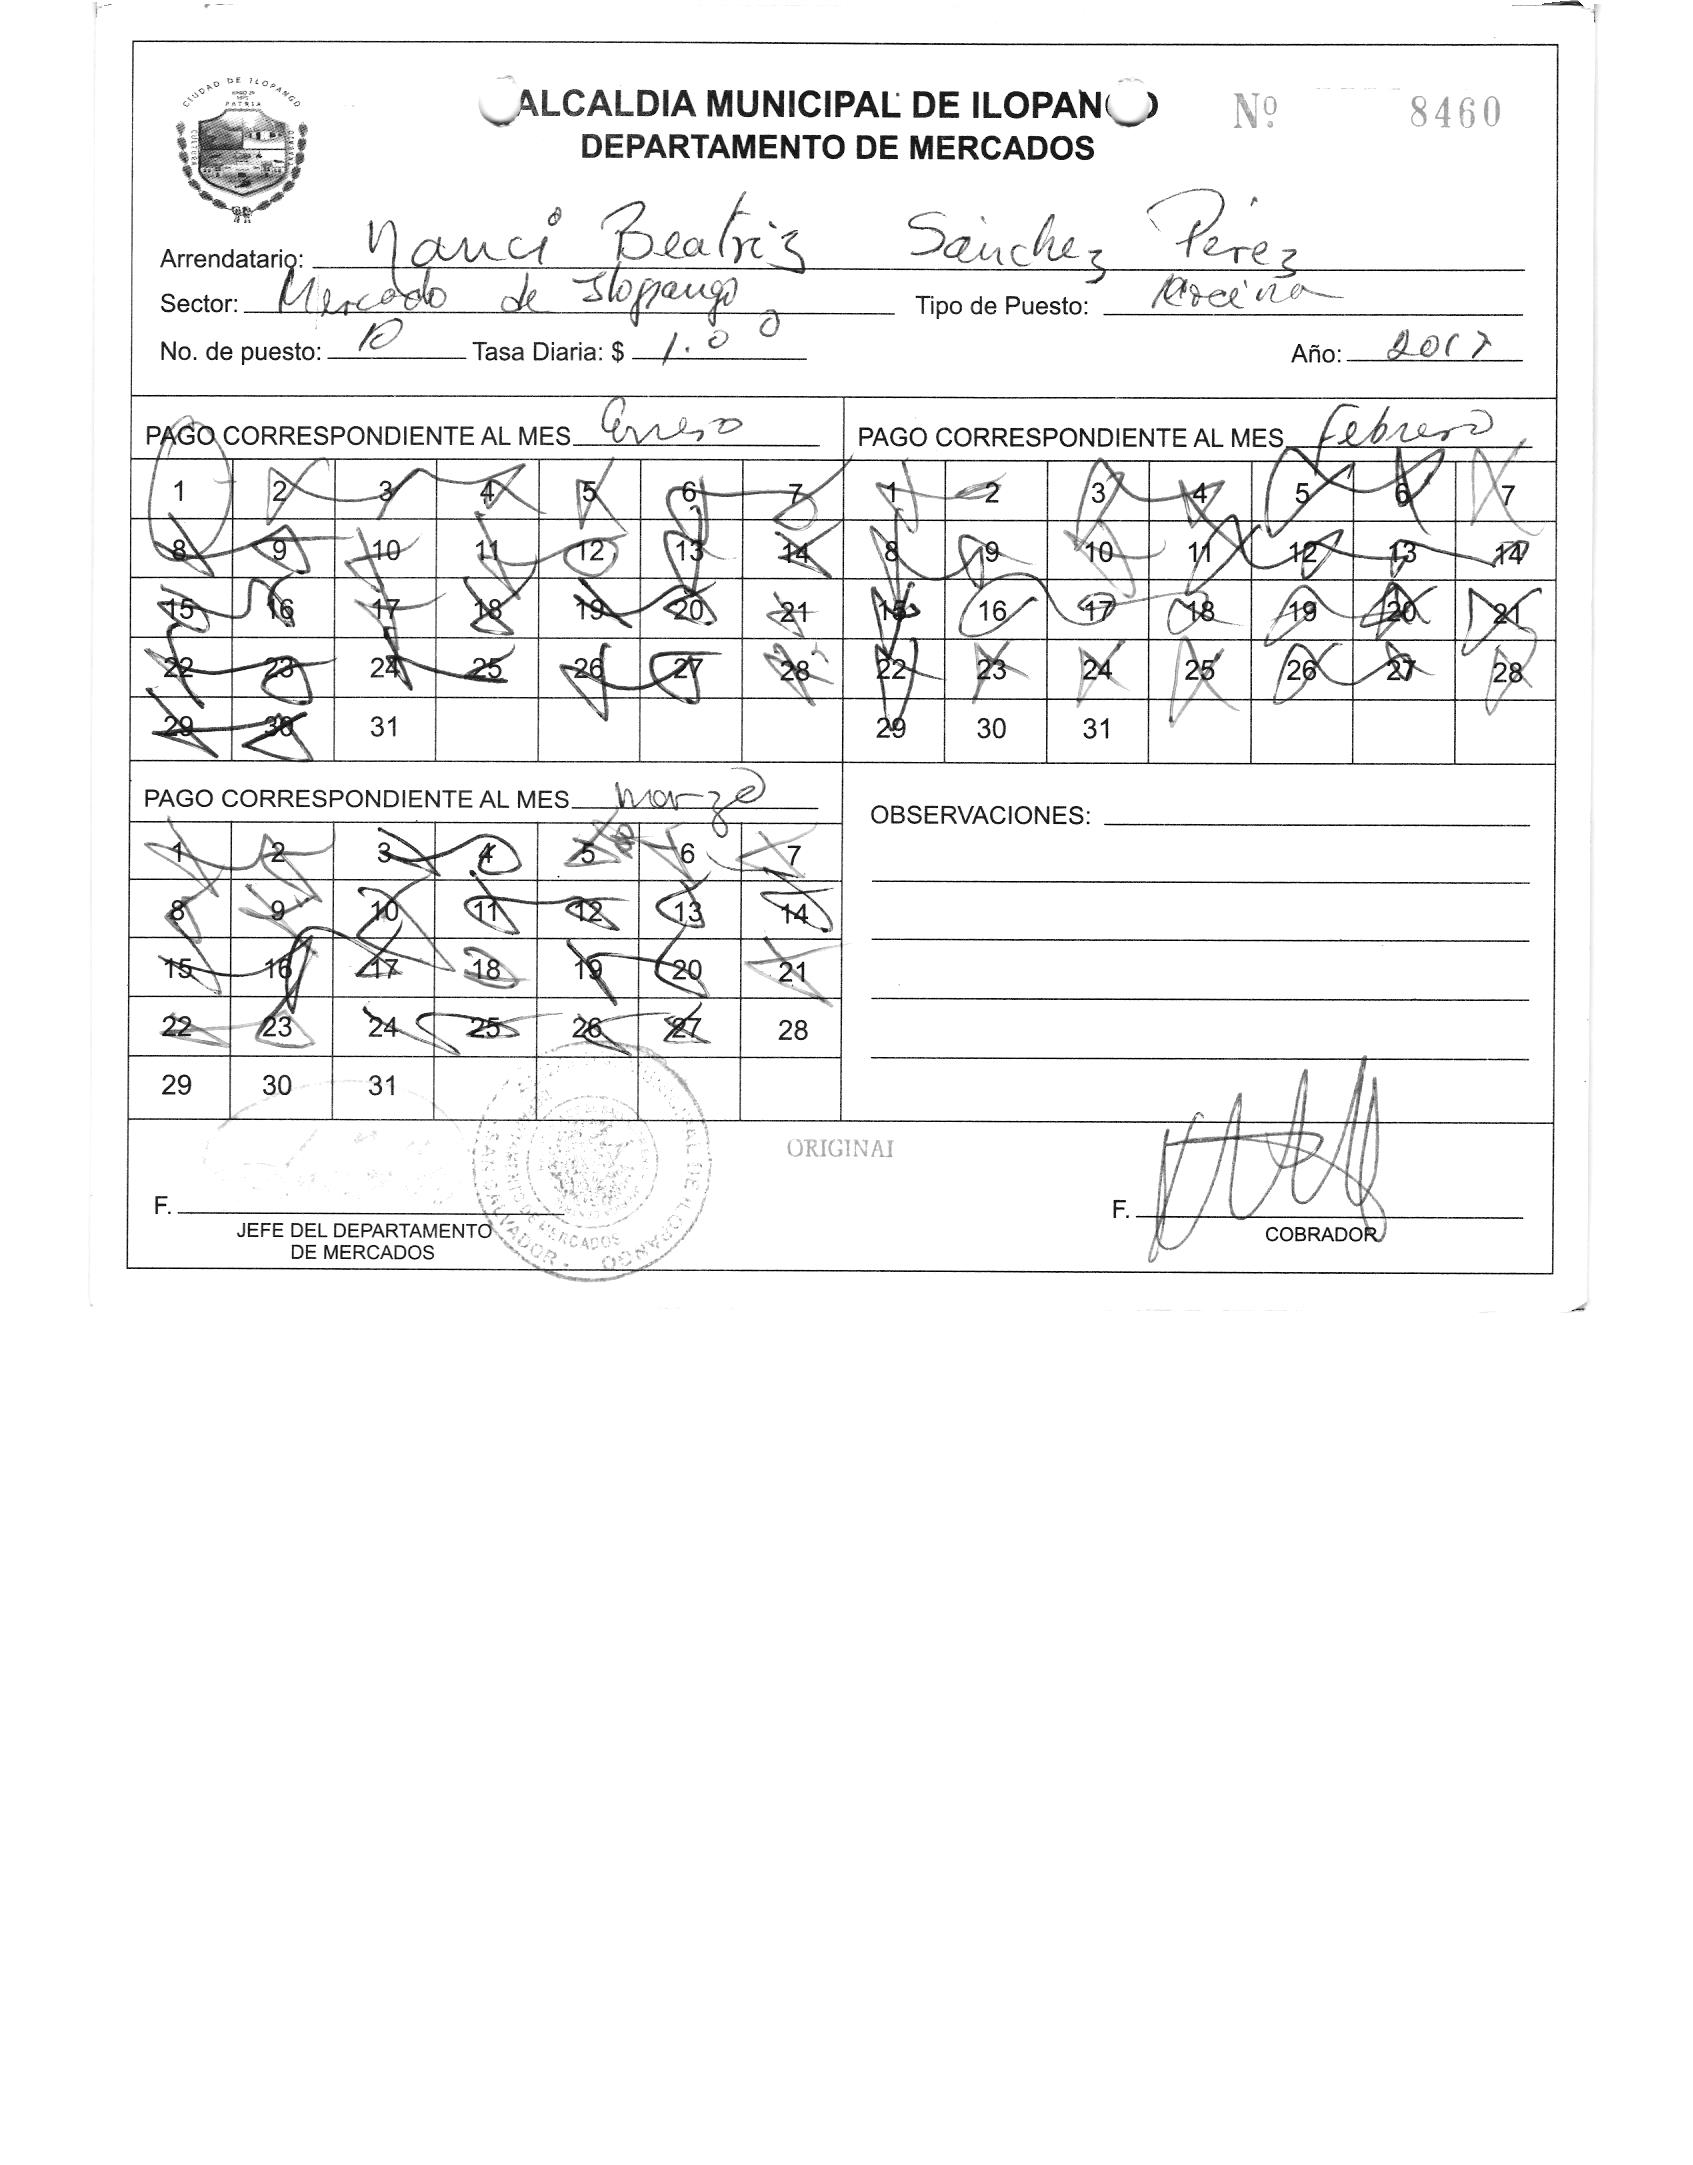 CIUDAD DE ILOPANGO
PATRIA
ALCALDIA MUNICIPAL DE ILOPANGO
DEPARTAMENTO DE MERCADOS
Nº 8460
Arrendatario: Nanci Beatriz Sánchez Pérez
Sector: Mercado de Ilopango Tipo de Puesto: Cocina
No. de puesto: 10 Tasa Diaria: $ 1.00 Año: 2017
PAGO CORRESPONDIENTE AL MES Enero
1 2 3 4 5 6 7
8 9 10 11 12 13 14
15 16 17 18 19 20 21
22 23 24 25 26 27 28
29 30 31
PAGO CORRESPONDIENTE AL MES Febrero
1 2 3 4 5 6 7
8 9 10 11 12 13 14
15 16 17 18 19 20 21
22 23 24 25 26 27 28
29 30 31
PAGO CORRESPONDIENTE AL MES Marzo
1 2 3 4 5 6 7
8 9 10 11 12 13 14
15 16 17 18 19 20 21
22 23 24 25 26 27 28
29 30 31
OBSERVACIONES:
ORIGINAL
F.
JEFE DEL DEPARTAMENTO
DE MERCADOS
F.
COBRADOR